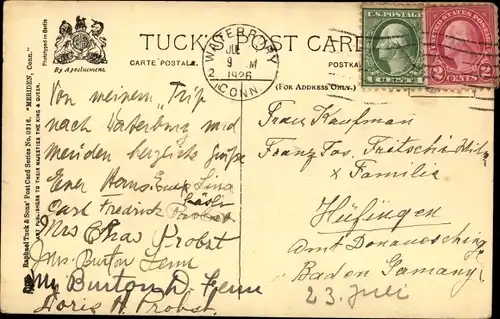 Phototyped in Berlin
By Appointment.
TUCK'S POST CARD
CARTE POSTALE.
POSTKA
(FOR ADDRESS ONLY.)
WATERBURY
JUL
9 M
2 1926
CONN.
U.S. POSTAGE
1 CENT 1
UNITED STATES POSTAGE
2 CENTS 2
Raphael Tuck & Sons' Post Card Series No. 0316. "MERIDEN, Conn."
ART PUBLISHERS TO THEIR MAJESTIES THE KING & QUEEN.
Von meinem Trip
nach Waterbury und
meriden herzliche Grüße
Euer Hans Lina
Carl Fredrick Probst
Mrs Chas Probst
Mrs. Burton Fenn
Mr Burton D. Fenn
Doris H. Probst.
Frau Kaufman
Franz Jos. Fritschi
x Familie
Hüfingen
Amt Donaueschingen
Baden Gemany
23. Juli